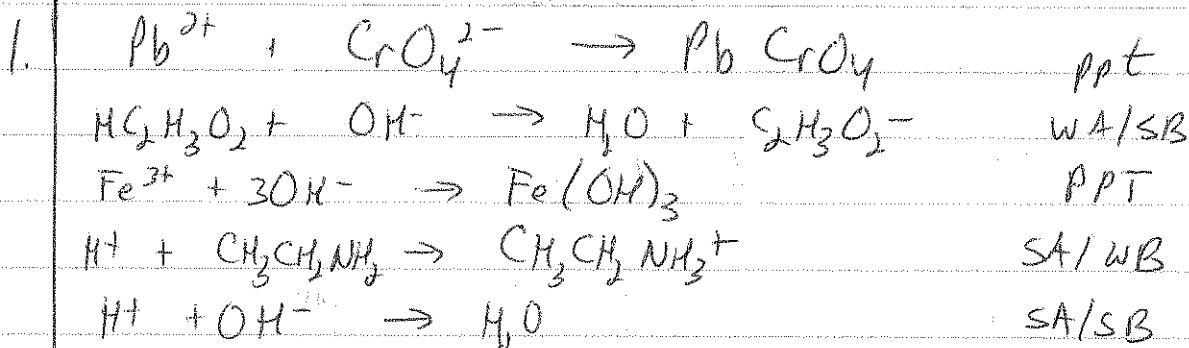 1. Pb²⁺ + CrO₄²⁻ → PbCrO₄ ppt
HC₂H₃O₂ + OH⁻ → H₂O + C₂H₃O₂⁻ WA/SB
Fe³⁺ + 3OH⁻ → Fe(OH)₃ PPT
H⁺ + CH₃CH₂NH₂ → CH₃CH₂NH₃⁺ SA/WB
H⁺ + OH⁻ → H₂O SA/SB